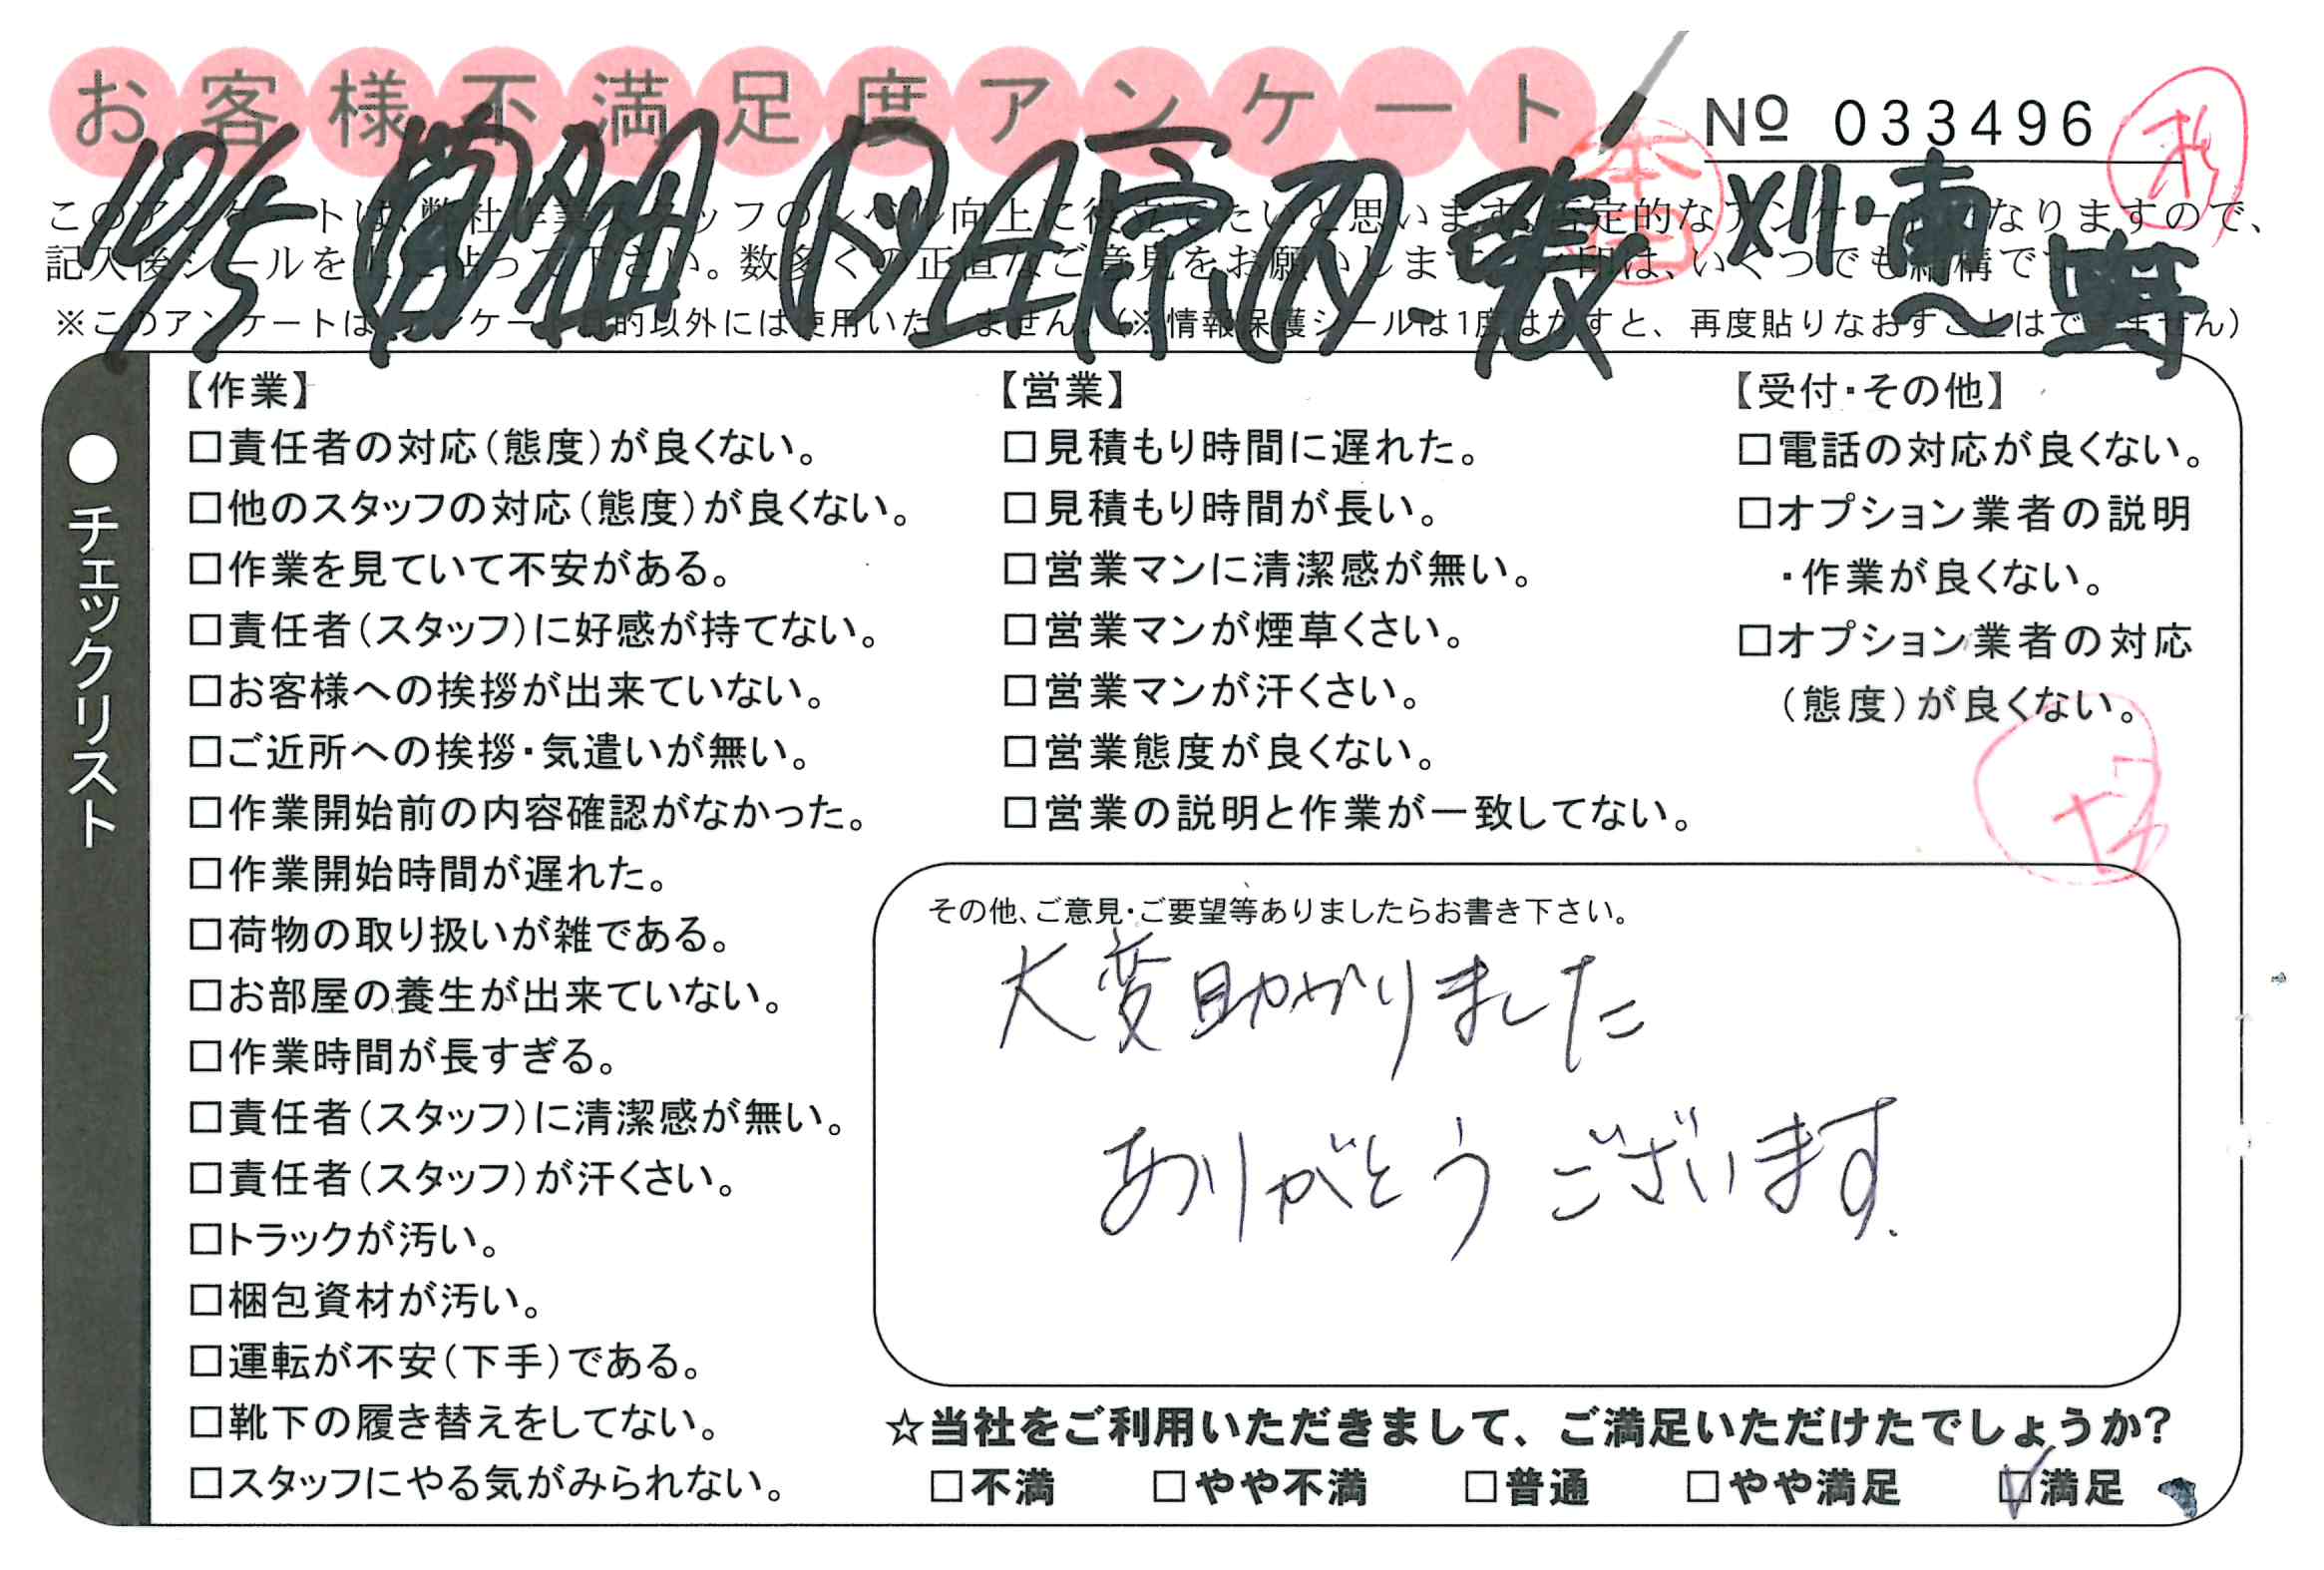 お客様不満足度アンケート
№ 033496
12/5
このアンケートは、弊社作業スタッフのレベル向上に役立てたいと思います。否定的なアンケートになりますので、
記入後シールを上に貼って下さい。数多くの正直なご意見をお願いします。 は、いくつでも結構です
※このアンケートは、アンケート目的以外には使用いたしません。(※情報保護シールは1度はがすと、再度貼りなおすことはできません)
●チェックリスト
【作業】
□責任者の対応(態度)が良くない。
□他のスタッフの対応(態度)が良くない。
□作業を見ていて不安がある。
□責任者(スタッフ)に好感が持てない。
□お客様への挨拶が出来ていない。
□ご近所への挨拶・気遣いが無い。
□作業開始前の内容確認がなかった。
□作業開始時間が遅れた。
□荷物の取り扱いが雑である。
□お部屋の養生が出来ていない。
□作業時間が長すぎる。
□責任者(スタッフ)に清潔感が無い。
□責任者(スタッフ)が汗くさい。
□トラックが汚い。
□梱包資材が汚い。
□運転が不安(下手)である。
□靴下の履き替えをしてない。
□スタッフにやる気がみられない。
【営業】
□見積もり時間に遅れた。
□見積もり時間が長い。
□営業マンに清潔感が無い。
□営業マンが煙草くさい。
□営業マンが汗くさい。
□営業態度が良くない。
□営業の説明と作業が一致してない。
【受付・その他】
□電話の対応が良くない。
□オプション業者の説明
・作業が良くない。
□オプション業者の対応
(態度)が良くない。
その他、ご意見・ご要望等ありましたらお書き下さい。
大変助かりました
ありがとうございます.
☆当社をご利用いただきまして、ご満足いただけたでしょうか?
□不満 □やや不満 □普通 □やや満足 ☑満足